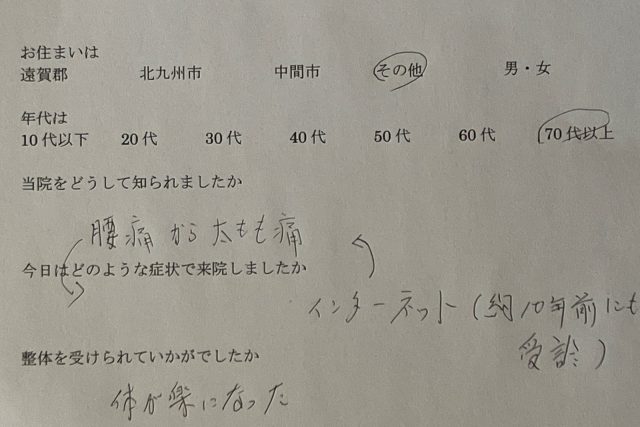 お住まいは
遠賀郡 北九州市 中間市 その他 男・女
年代は
10代以下 20代 30代 40代 50代 60代 70代以上
当院をどうして知られましたか
腰痛から太もも痛
今日はどのような症状で来院しましたか
インターネット(約10年前にも
受診)
整体を受けられていかがでしたか
体が楽になった